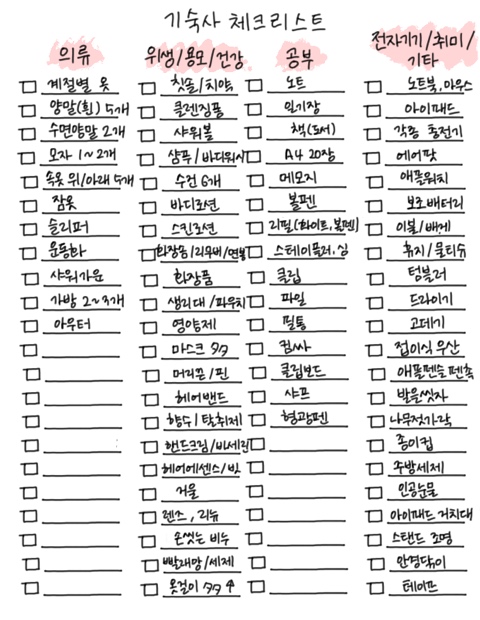 기숙사 체크리스트
의류
계절별 옷
양말(흰) 5개
수면양말 2개
모자 1~2개
속옷 위/아래 5개
잠옷
슬리퍼
운동화
샤워가운
가방 2~3개
아우터
위생/용모/건강
칫솔/치약
클렌징폼
샤워볼
샴푸/바디워시
수건 6개
바디로션
스킨로션
화장솜/리무버/면봉
화장품
생리대/파우치
영양제
마스크
머리끈/핀
헤어밴드
향수/탈취제
핸드크림/바세린
헤어에센스/빗
거울
렌즈, 리뉴
손씻는 비누
빨래망/세제
옷걸이
공부
노트
일기장
책(도서)
A4 20장
메모지
볼펜
리필(화이트,볼펜)
스테이플러,심
클립
파일
필통
컴싸
클립보드
샤프
형광펜
전자기기/취미/
기타
노트북,마우스
아이패드
각종 충전기
에어팟
애플워치
보조배터리
이불/베개
휴지/물티슈
텀블러
드라이기
고데기
접이식 우산
애플펜슬 펜촉
발음씻자
나무젓가락
종이컵
주방세제
인공눈물
아이패드 거치대
스탠드 조명
안경닦이
테이프